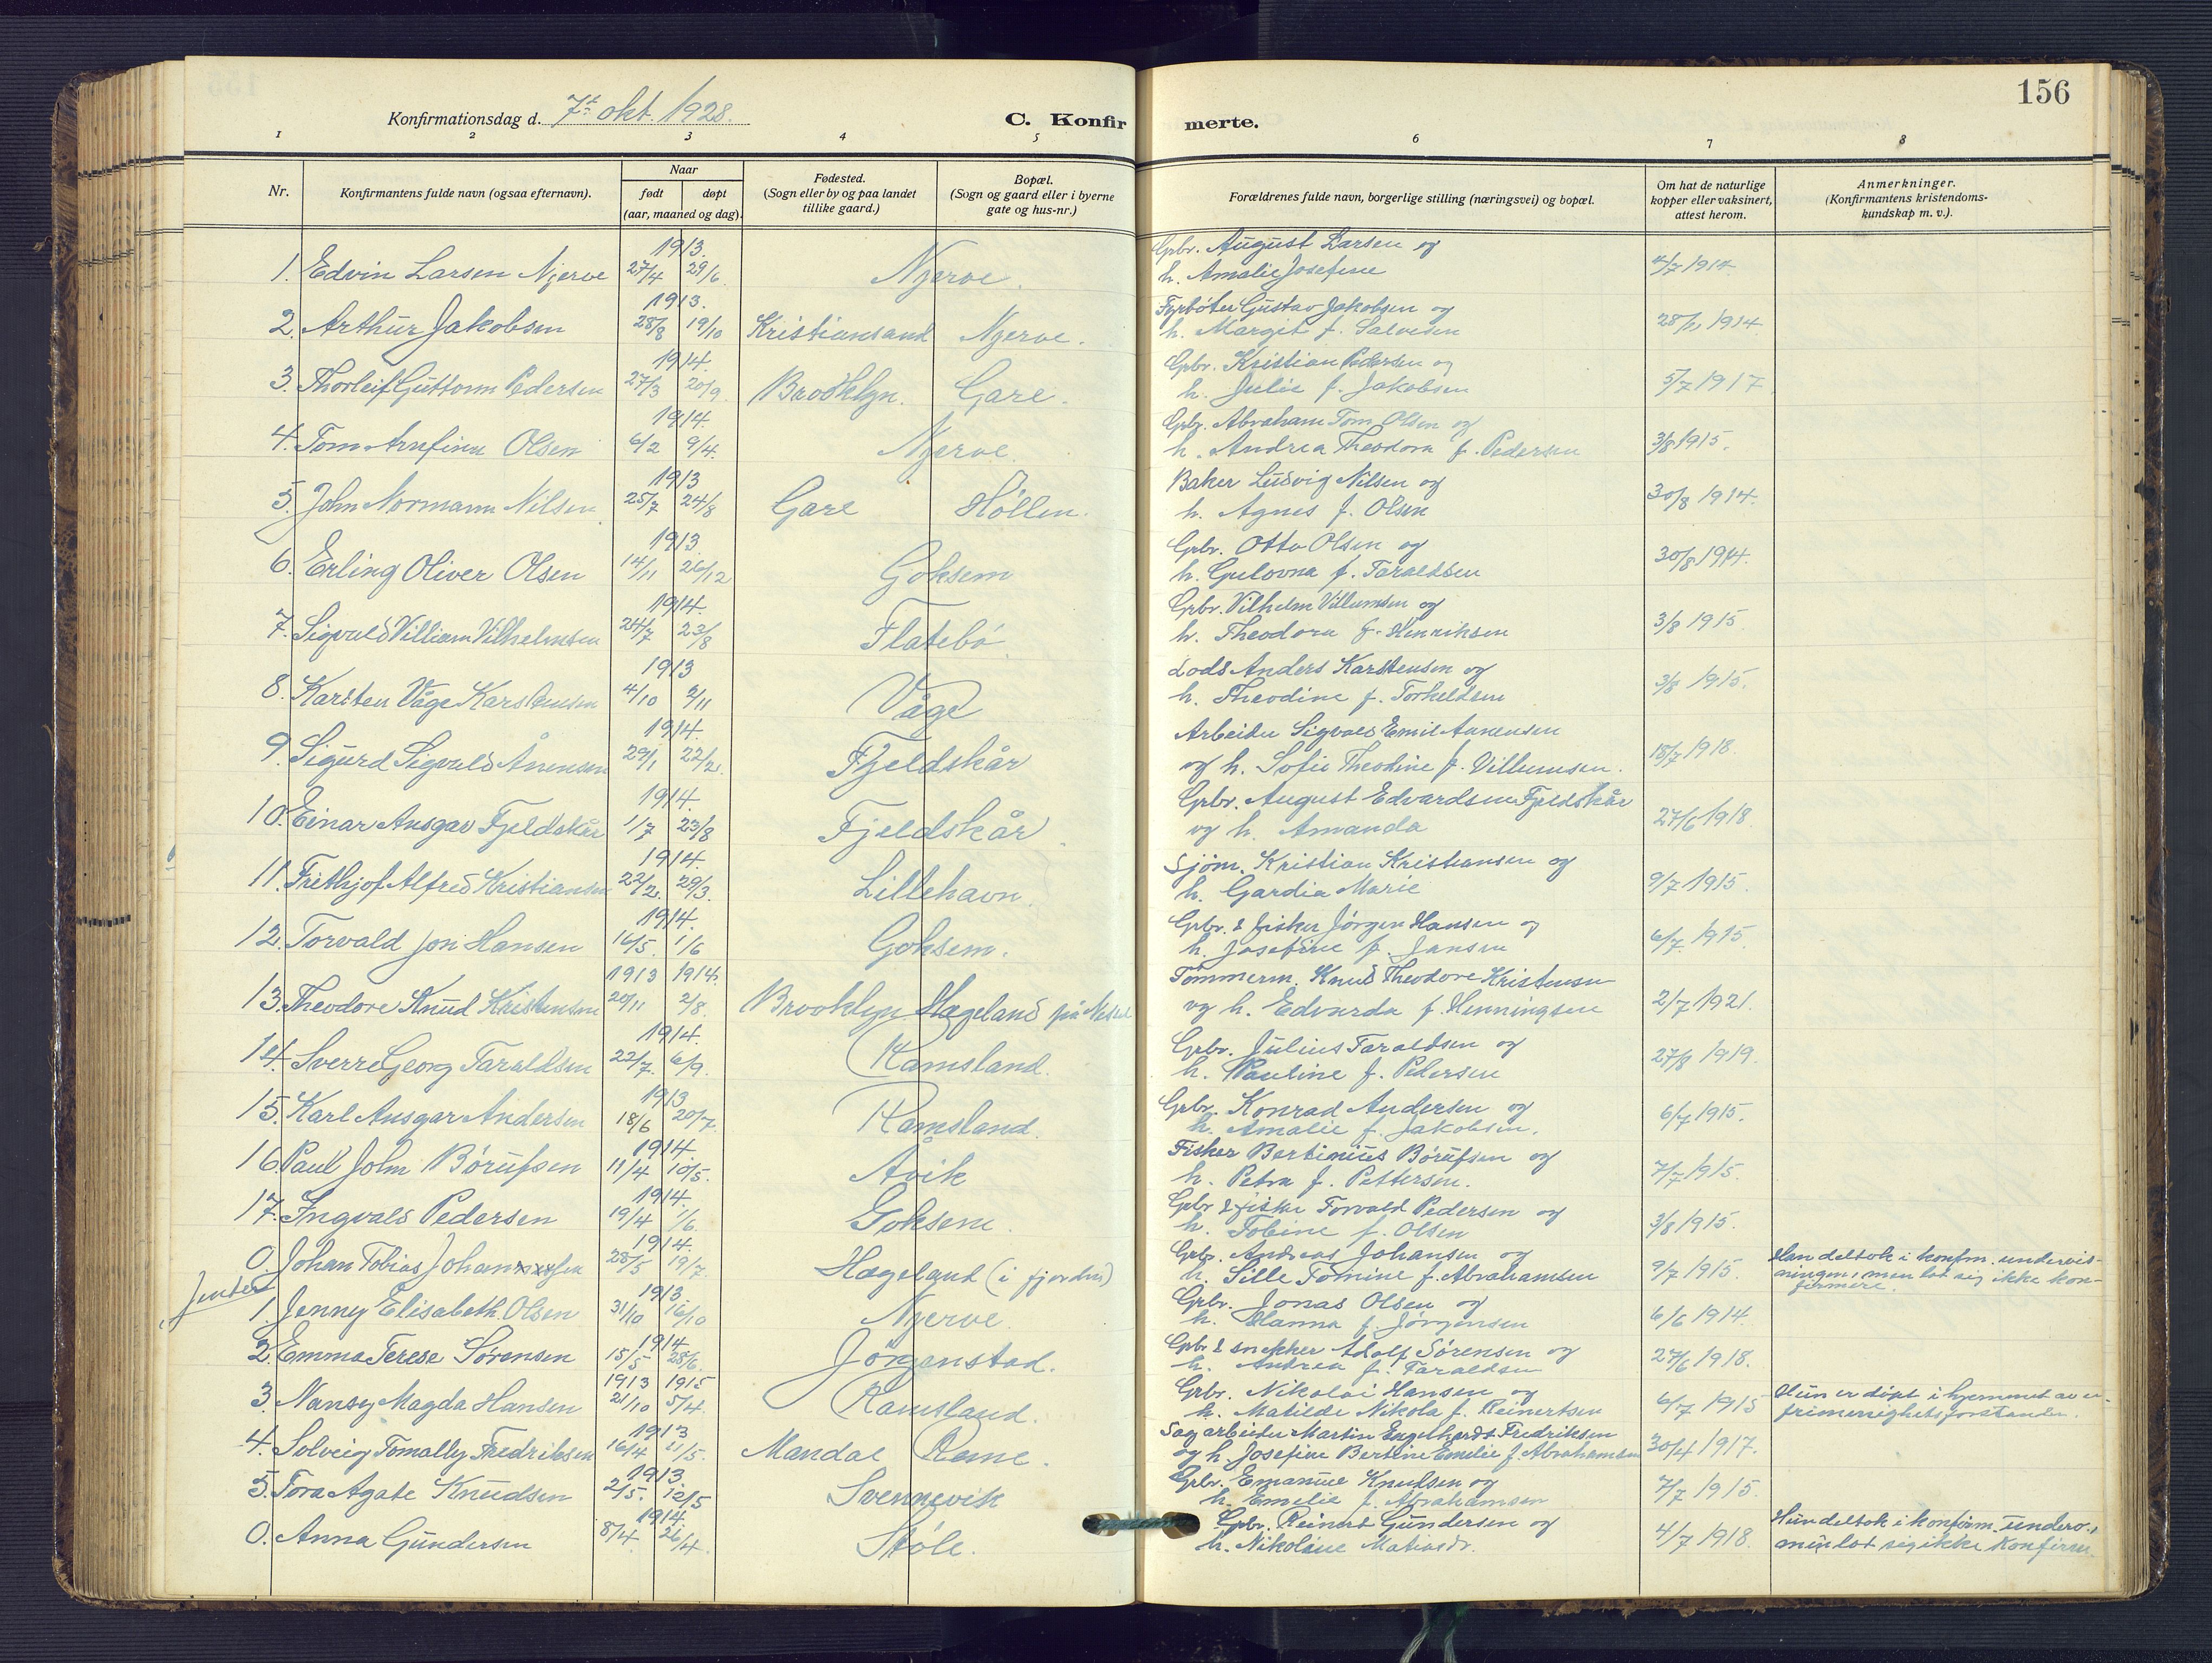 156
Konfirmationsdag d. 7de okt. 1928.
C. Konfirmerte.
1 2 3 4 5 6 7 8
Nr. Konfirmantens fulde navn (ogsaa efternavn). Naar født døpt (aar, maaned og dag). Fødested. (Sogn eller by og paa landet tillike gaard.) Bopæl. (Sogn og gaard eller i byerne gate og hus-nr.) Forældrenes fulde navn, borgerlige stilling (næringsvei) og bopæl. Om hat de naturlige kopper eller vaksinert, attest herom. Anmerkninger. (Konfirmantens kristendoms-kundskap m. v.).
1913. Grbr. August Larsen og
1. Edvin Larsen Njerve 27/4 29/6 Njerve. h. Amalie Josefine 4/7 1914
1913. Fyrbøter Gustav Jakobsen og
2. Arthur Jakobsen 28/8 19/10 Kristiansand Njerve. h. Margit f. Salvesen 1914
1914. Grbr. Kristian Pedersen og
3. Thorleif Guttorm Pedersen 27/3 20/9 Brooklyn. Gare. h. Julie f. Jakobsen 5/7 1917
1914. Grbr. Abraham Tom Olsen og
4. Tom Arnfinn Olsen 6/2 9/4. Njerve. h. Andrea Theodora f. Pedersen 3/8 1915.
1913 Baker Ludvig Nilsen og
5. John Normann Nilsen 25/7 24/8 Gare Höllen. h. Agnes f. Olsen 30/8 1914.
1913 Grbr. Otto Olsen og
6. Erling Oliver Olsen 14/11 26/12 Goksem h. Gulovna f. Taraldsen 30/8 1914.
1914. Grbr. Vilhelm Villumsen og
7. Sigvald Villiam Vilhelmsen 24/7 23/8 Flatebö h. Theodora f. Henriksen 3/8 1915.
1913 Lods Anders Karstensen og
8. Karsten Våge Karstensen 4/10 2/11 Våge h. Theodine f. Torkeldsen 3/8 1915.
1914. Arbeider Sigvald Emil Aanensen
9. Sigurd Sigvald Ånensen 29/1 22/2. Fjeldskår og h. Sofie Theodine f. Villumsen. 18/7 1918.
1914. Grbr. August Edvardsen Fjeldskår
10. Einar Ansgar Fjeldskår 1/7 23/8 Fjeldskår. og h. Amanda 27/6 1918.
1914. Sjöm. Kristian Kristiansen og
11. Frithjof Alfred Kristiansen 22/2. 29/3. Lillehavn. h. Gardia Marie 9/7 1915.
1914. Grbr. & fisker Jörgen Hansen og
12. Torvald Jon Hansen 16/5. 1/6 Goksem. h. Josefine f. Jansen 6/7 1915.
1913 1914. Tömmerm. Knud Theodore Kristensen
13. Theodore Knud Kristensen 20/11 2/8. Brooklyn Hægeland på og h. Edvarda f. Henningsen 2/7 1921.
1914. Grbr. Julius Taraldsen og
14. Sverre Georg Taraldsen 22/7. 6/9. Ramsland. h. Pauline f. Pedersen 27/8 1919.
1913 Grbr. Konrad Andersen og
15. Karl Ansgar Andersen 18/6 20/7. Ramsland. h. Amalie f. Jakobsen. 6/7 1915.
1914. Fisker Bertinius Börufsen og
16. Paul John Börufsen 11/4 10/5. Åvik h. Petra f. Pettersen. 7/7 1915.
1914. Grbr & fisker Torvald Pedersen og
17. Ingvald Pedersen 19/4 1/6. Goksem. h. Tobine f. Olsen 3/8 1915.
1914. Grbr. Andreas Johansen og Han deltok i konfm. undervis-
0. Johan Tobias Johannessen 28/5 19/7. Hægeland (i fjorden) h. Sille Tomine f. Abrahamsen 9/7 1915. ningen, men lot sig ikke kon-
firmere.
Jenter
1913. Grbr. Jonas Olsen og
1. Jenny Elisabeth Olsen 31/10 16/10 Njerve. h. Hanna f. Jörgensen 6/6 1914.
1914 Grbr & snekker Adolf Sörensen og
2. Emma Terese Sörensen 15/5 28/6. Jörgenstad. h. Andrea f. Taraldsen 27/6 1918.
1913 1915 Grbr. Nikolai Hansen og Hun er döpt i hjemmet av en
3. Nansy Magda Hansen 21/10 5/4. Ramsland. h. Matilde Nikola f. Reinertsen 6/7 1915 frimenighetsforstander.
1913 Sagarbeider Martin Engelhardt Fredriksen
4. Solveig Tomally Fredriksen 16/4 11/5. Mandal Reme. og h. Josefine Bertine Emilie f. Abrahamsen 30/4 1917.
1913. Grbr. Emanuel Knudsen og
5. Tora Agate Knudsen 2/5. 12/5 Svennevik h. Emelie f. Abrahamsen 7/7 1915.
1914. Grbr. Reinert Gundersen og Hun deltok i konfirm. underv.,
0. Anna Gundersen 8/4 26/4. Støle. h. Nikoline Matiasdr. 4/7 1918. men lot sig ikke konfirm.